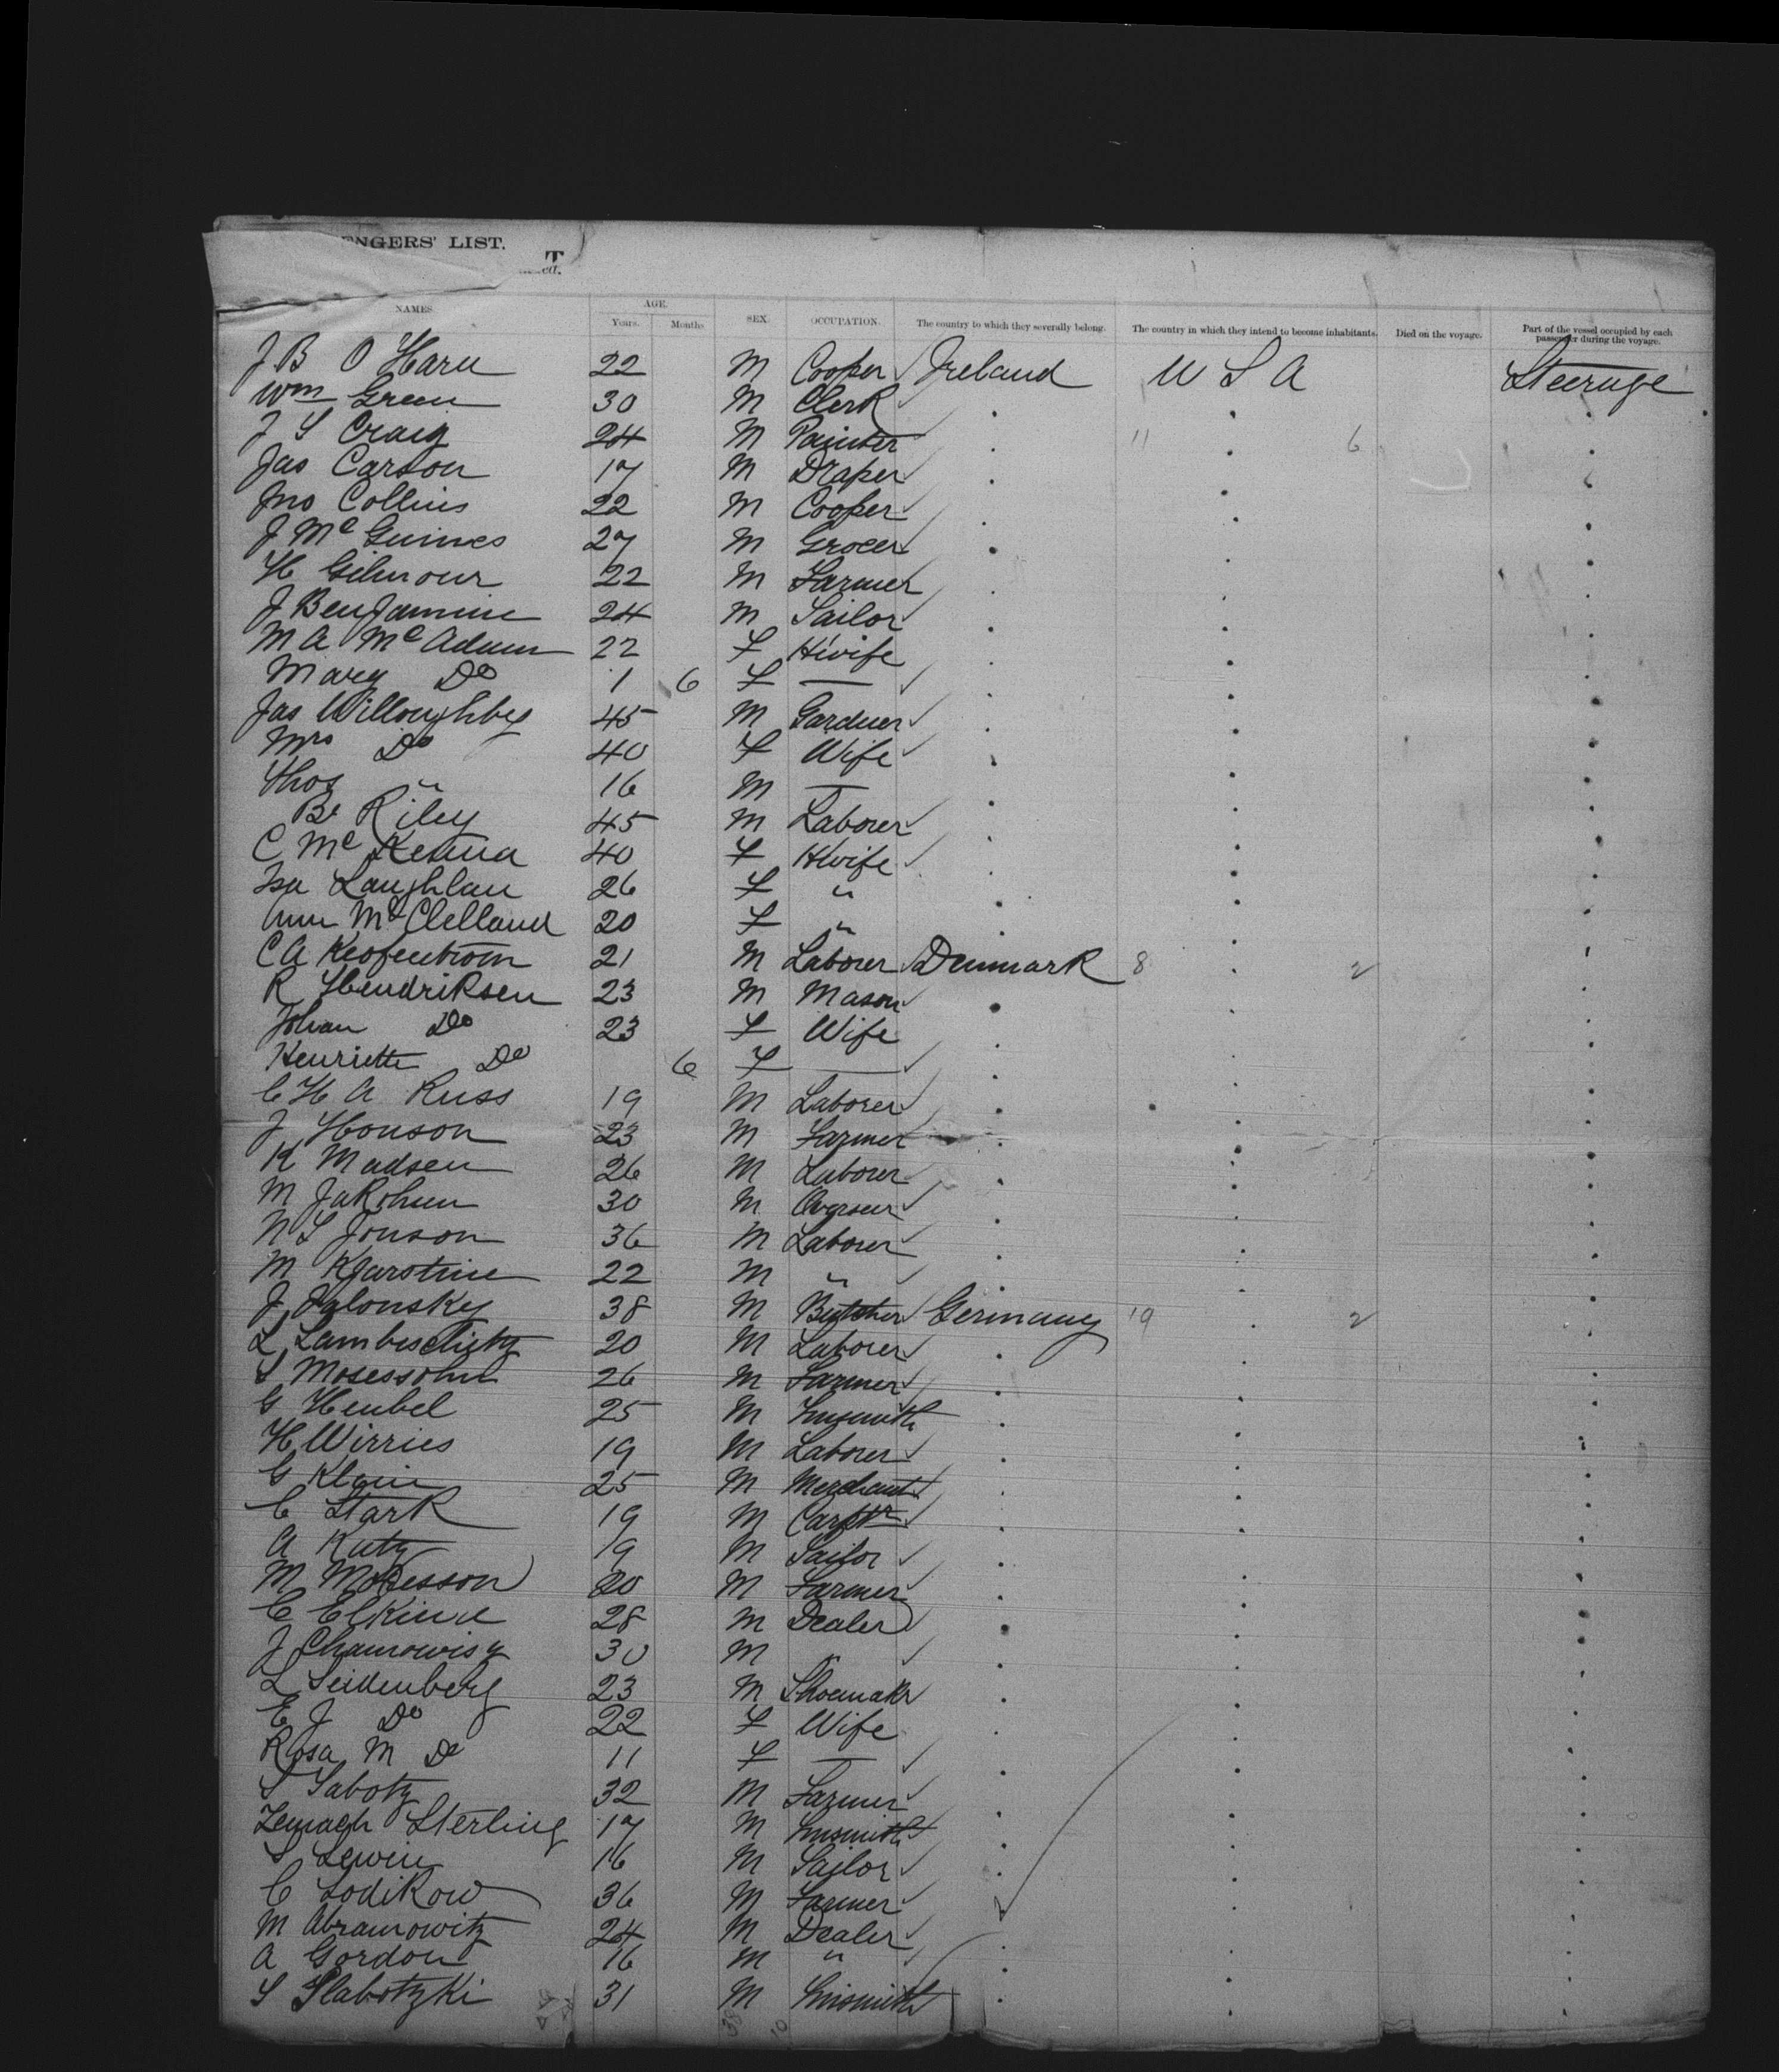 ENGERS' LIST.
T
NAMES. AGE. Years. Months. SEX. OCCUPATION. The country to which they severally belong. The country in which they intend to become inhabitants. Died on the voyage. Part of the vessel occupied by each passenger during the voyage.
J B O Hara 22 M Cooper Ireland U S A Steerage
Wm Green 30 M Clerk
J S Craig 24 M Painter 11 6
Jas Carson 17 M Draper
Jno Collins 22 M Cooper
J McGuines 27 M Grocer
H Gilmour 22 M Farmer
J Benjamine 24 M Sailor
M A McAdam 22 F H'wife
Mary Do 1 6 F —
Jas Willoughby 45 M Gardner
Mrs Do 40 F Wife
Thos " 16 M —
Riley 45 M Laborer
C McKenna 40 F Hwife
Isa Laughlan 26 F "
Ann McClelland 20 F "
C A 21 M Laborer Denmark 8 2
R Hendriksen 23 M Mason
Johan Do 23 F Wife
Henriette Do 6 F —
C H A Russ 19 M Laborer
J Honson 23 M Farmer
K Madsen 26 M Laborer
M 30 M
N S Jonson 36 M Laborer
M Kjarstine 22 M "
J Jalonsky 38 M Butcher Germany 19 2
L 20 M Laborer
S Mosessohn 26 M Farmer
G Heubel 25 M
H Wirries 19 M Laborer
G Klein 25 M Merchant
C Stark 19 M Carptr
A Katz 19 M Sailor
M 20 M Farmer
C Elkind 28 M Dealer
J 30 M "
L Seidenberg 23 M Shoemakr
E J Do 22 F Wife
Rosa M Do 11 F —
S Sabotz 32 M Farmer
Zemach Sterling 17 M
S Lewin 16 M Sailor
C Lodikow 36 M Farmer
M Abramowitz 24 M Dealer
A Gordon 16 M "
S Slabotzki 31 M